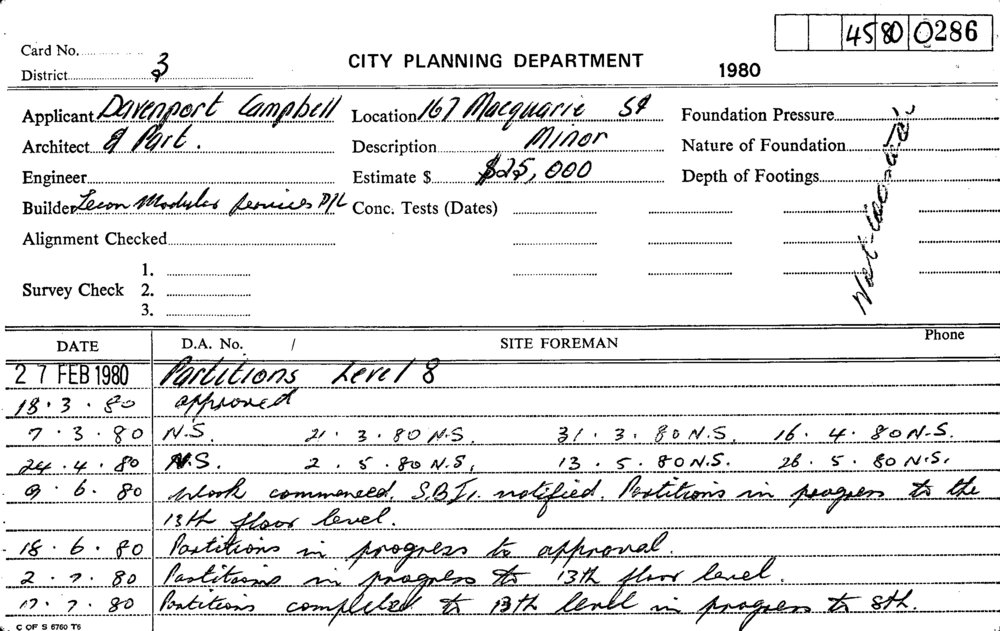 45 80 0286
Card No.
District 3
CITY PLANNING DEPARTMENT
1980
Applicant Davenport Campbell
Location 167 Macquarie St
Foundation Pressure
Architect & Part.
Description Minor
Nature of Foundation
Engineer
Estimate $ $25,000
Depth of Footings
Builder Modular Services P/L
Conc. Tests (Dates)
Alignment Checked
Survey Check
1.
2.
3.
DATE D.A. No. / SITE FOREMAN Phone
27 FEB 1980 Partitions Level 8
18.3.80 approved
7.3.80 N.S. 21.3.80 N.S. 31.3.80 N.S. 16.4.80 N.S.
24.4.80 N.S. 2.5.80 N.S. 13.5.80 N.S. 26.5.80 N.S.
9.6.80 Work commenced. notified. Partitions in progress to the
13th floor level.
18.6.80 Partitions in progress to approval.
2.7.80 Partitions in progress to 13th floor level.
17.7.80 Partitions completed to 13th level in progress to 8th.
C OF S 6760 T6